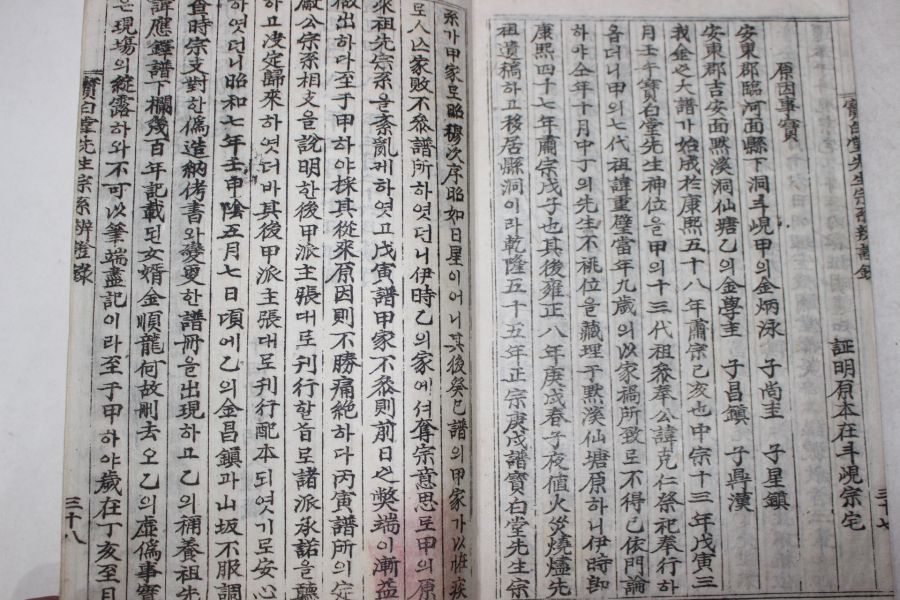 寶白堂先生宗系辨證錄
三十七
証明原本在斗峴宗宅
原因事實
安東郡臨河面縣下洞斗峴甲의金炳泳 子尚圭 子星鎮
安東郡吉安面黙溪洞仙塘乙의金學圭 子昌鎮 子鼎漢
我金之大譜가始成於康熙五十八年肅宗己亥也中宗十三年戊寅三
月壬午寶白堂先生神位을甲의十三代祖叅奉公諱克仁祭祀奉行하
옵더니甲의七代祖諱重璧當年九歲의以家禍所致로不得已依門論
하야仝年十月中丁의先生不祧位을藏埋于黙溪仙塘原하니伊時卽
康熙四十七年肅宗戊子也其後雍正八年庚戌春子夜値火災燒燼先
祖遺稿하고移居縣洞이라乾隆五十五年正宗庚戌譜寶白堂先生宗
系가甲家로昭穆次序昭如日星이어니其後癸巳譜의甲家가以
로人亡家敗不叅譜所하엿던니伊時乙의家에셔奪宗意思로甲의原
來祖先宗系을紊亂케하엿고戊寅譜甲家不叅則前日之弊端이漸益
做出하다至于甲하야採其從來原因則不勝痛絶하다丙寅譜所의定
厰公宗系相支을說明한後甲派主張대로刊行할旨로諸派承諾을聽
하고决定歸來하엿더바其後甲派主張대로刊行配本되엿기로安心
하엿던니昭和七年壬申陰五月七日頃에乙의金昌鎮과山坂不服調
查時宗支對한僞造納侤書와變更한譜冊을出現하고乙의稱養祖先
諱應鐸譜下欄幾百年記載된女婿金順龍何故刪去오乙의虛僞事實
은現場의綻露하와不可以筆端盡記이라至于甲하야歲在丁亥至月
寶白堂先生宗系辨證錄
三十八